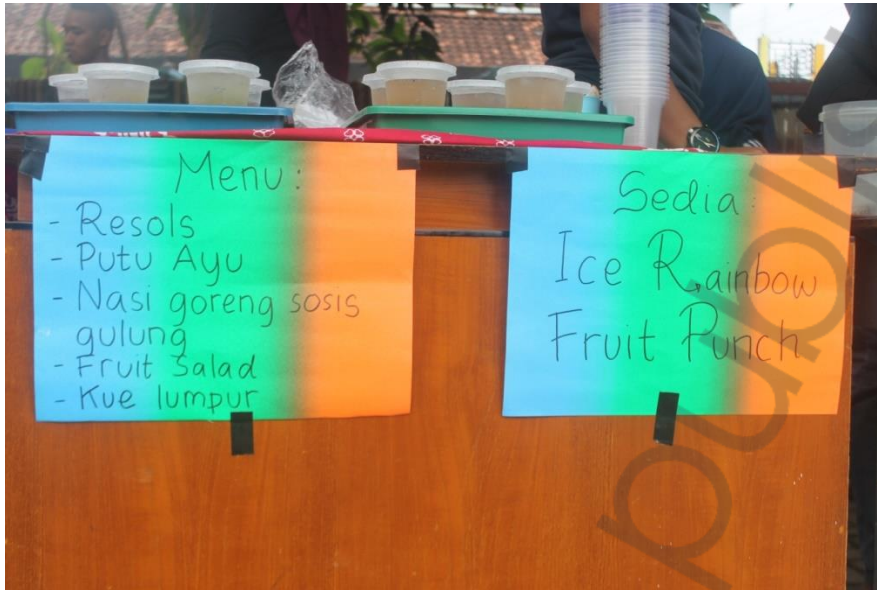 Menu:
- Resols
- Putu Ayu
- Nasi goreng sosis
gulung
- Fruit Salad
- Kue lumpur
Sedia:
Ice Rainbow
Fruit Punch